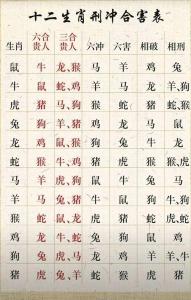 十二生肖刑冲合害表
生肖 六合贵人 三合贵人 六冲 六害 相破 相刑
鼠 牛 龙、猴 马 羊 鸡 兔
牛 鼠 蛇、鸡 羊 马 龙
虎 猪 马、狗 猴 蛇 猪
兔 狗 猪、羊 鸡 龙 马 鼠
龙 鸡 鼠、猴 狗 兔 牛 龙
蛇 猴 牛、鸡 猪 虎 猴
马 羊 虎、狗 鼠 牛 兔 马
羊 马 兔、猪 牛 鼠 狗
猴 蛇 鼠、龙 虎 猪 蛇
鸡 龙 牛、蛇 兔 狗 鼠 鸡
狗 兔 虎、马 龙 鸡 羊
猪 虎 兔、羊 蛇 猴 虎 猪